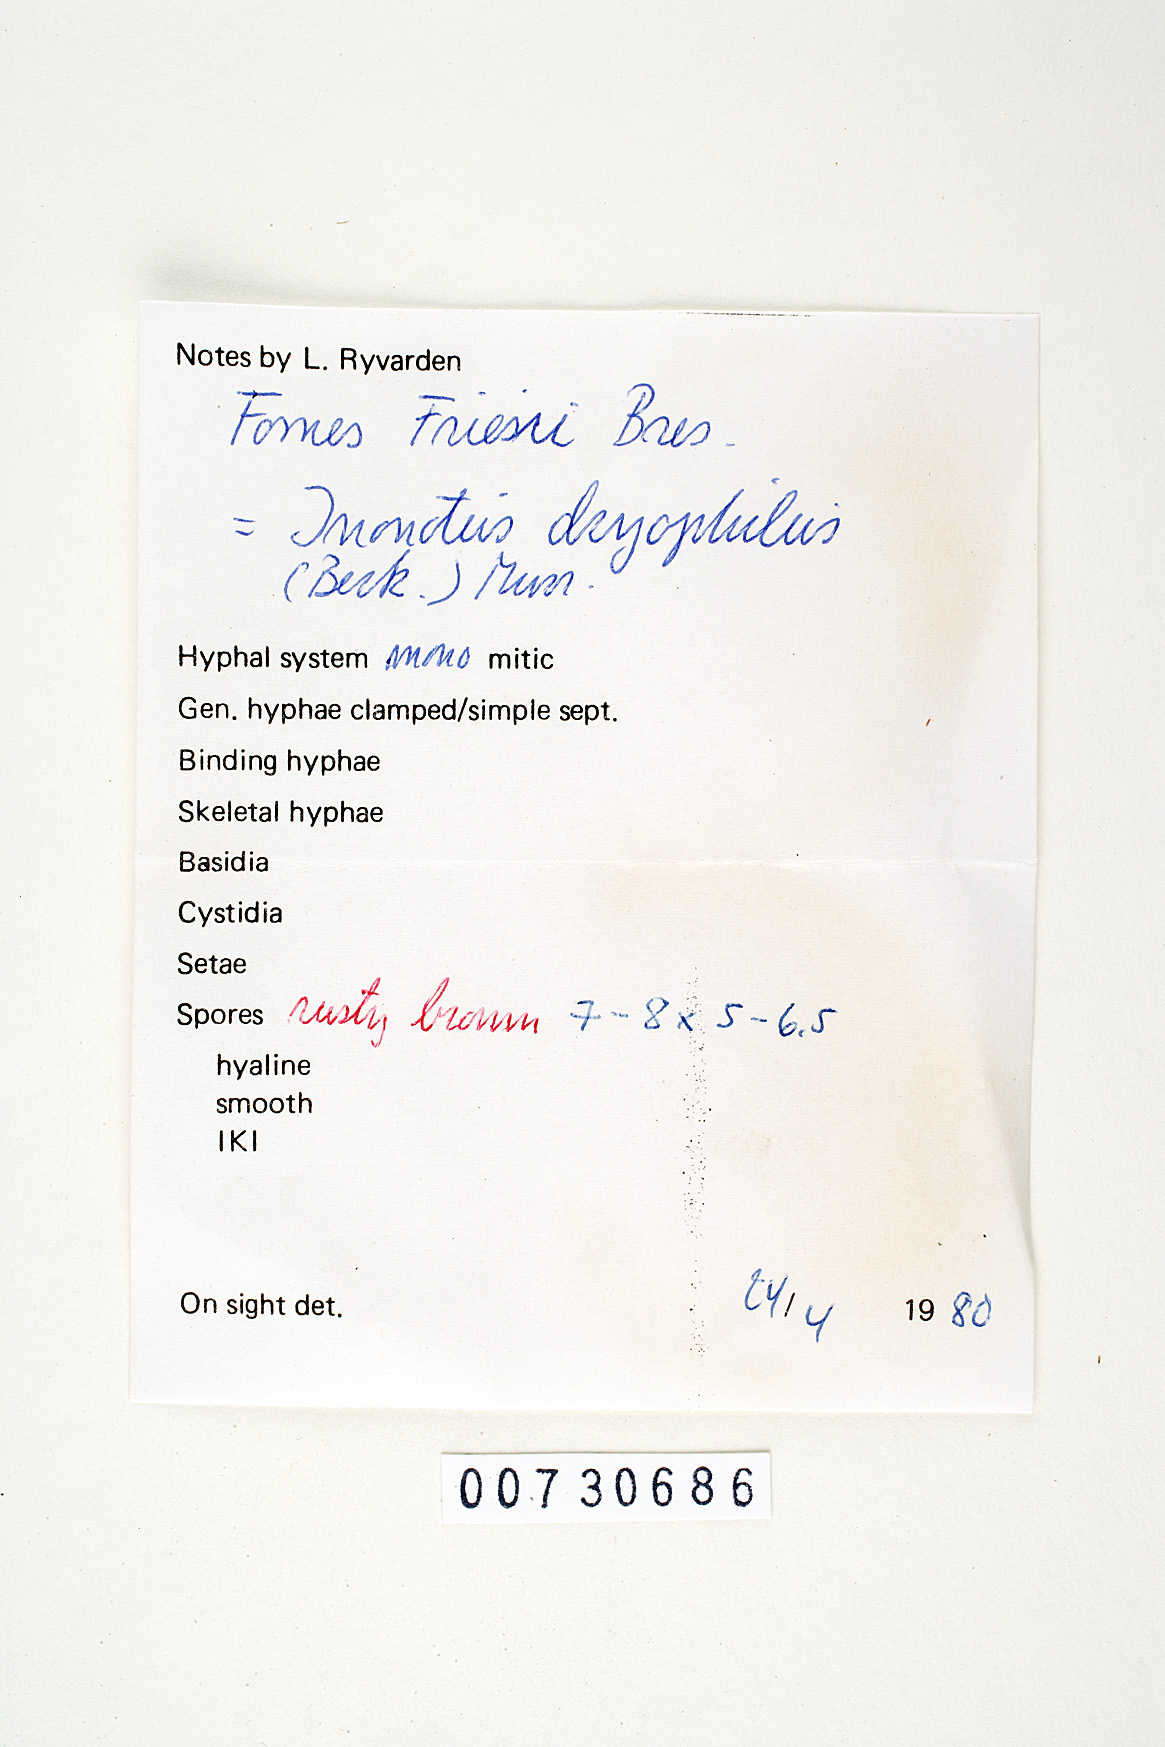 Notes by L. Ryvarden
Fomes Friesii Bres.
= Inonotus dryophilus
(Berk.) Murr.
Hyphal system mono mitic
Gen. hyphae clamped/simple sept.
Binding hyphae
Skeletal hyphae
Basidia
Cystidia
Setae
Spores rusty brown 7-8 x 5-6.5
hyaline
smooth
IKI
On sight det. 24/4 1980
00730686